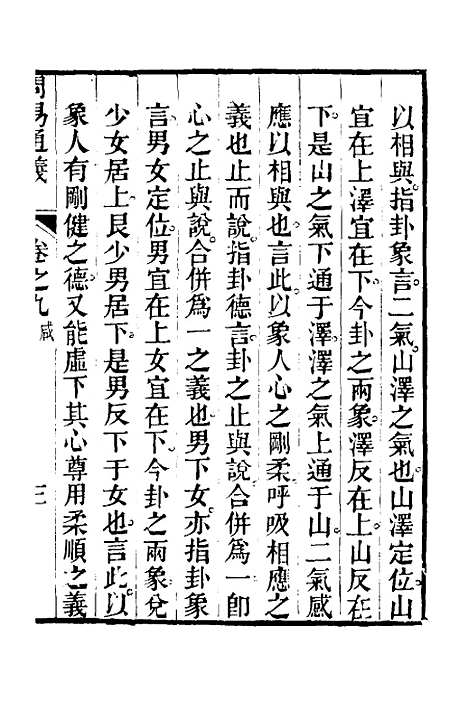 以相與指卦象言二氣山澤之氣也山澤定位山
宜在上澤宜在下今卦之兩象澤反在上山反在
下是山之氣下通于澤澤之氣上通于山二氣感
應以相與也言此以象人心之剛柔呼吸相應之
義也止而說指卦德言卦之止與說合併爲一卽
心之止與說合併爲一之義也男下女亦指卦象
言男女定位男宜在上女宜在下今卦之兩象兌
少女居上艮少男居下是男反下于女也言此以
象人有剛健之德又能虛下其心尊用柔順之義
周易通義 卷之九 咸 三